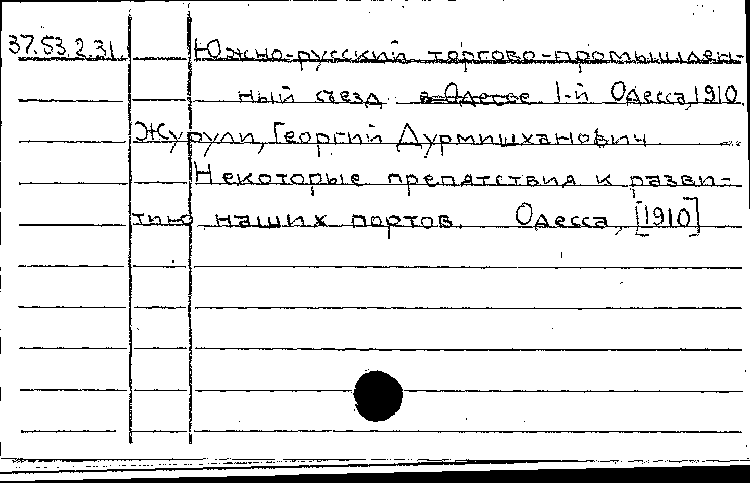 37.53.2.31. Южно-русский торгово-промышлен-
ный съезд в Одессе 1-й Одесса, 1910.
Журули, Георгий Дурмишханович
Некоторые препятствия к разви-
тию наших портов. Одесса, [1910]